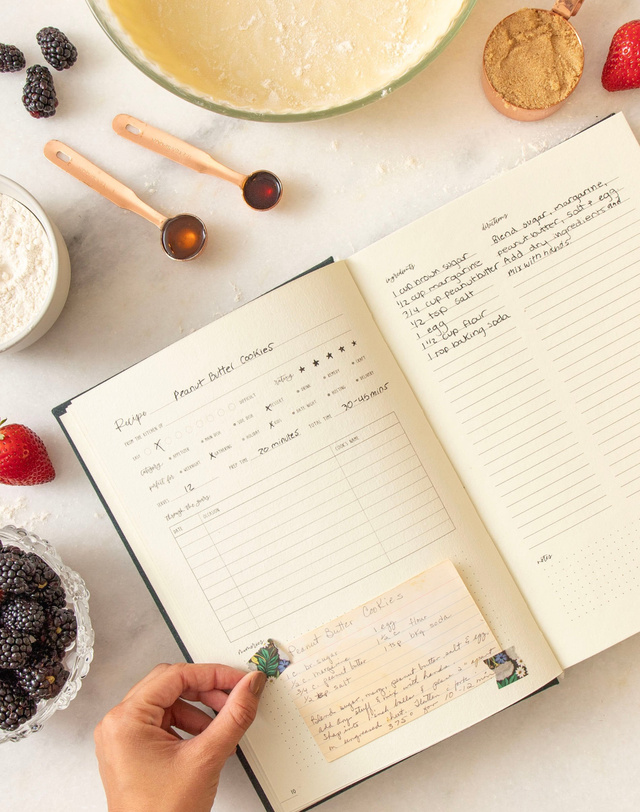 Recipe Peanut Butter Cookies
rating: ★ ★ ★ ★ ★
FROM THE KITCHEN OF
EASY X DIFFICULT
category: APPETIZER MAIN DISH SIDE DISH X DESSERT DRINK BREAKFAST CRAFT
perfect for: WEEKNIGHT X GATHERING HOLIDAY X KIDS DATE NIGHT HOSTING DELIVERY
SERVES 12 PREP TIME 20 minutes TOTAL TIME 30-45 mins
through the years
DATE OCCASION COOK'S NAME
memories
Peanut Butter Cookies
1 c. br. sugar 1 egg
1/2 c. margarine flour
3/4 c. peanut butter 1 tsp. bkg soda
1/2 tsp salt
Blend sugar, marg, peanut butter, salt & egg.
Add dry stuff & mix with hands.
Shape into 1 inch balls & place 2" apart
on ungreased sheet. Flatten
375° 10-12 min
10
ingredients
1 cup brown sugar
1/2 cup margarine
3/4 cup peanut butter
1/2 tsp salt
1 egg
1 1/2 cup flour
1 tsp baking soda
directions
Blend sugar, margarine,
peanut butter, salt & egg
Add dry ingredients and
mix with hands.
notes